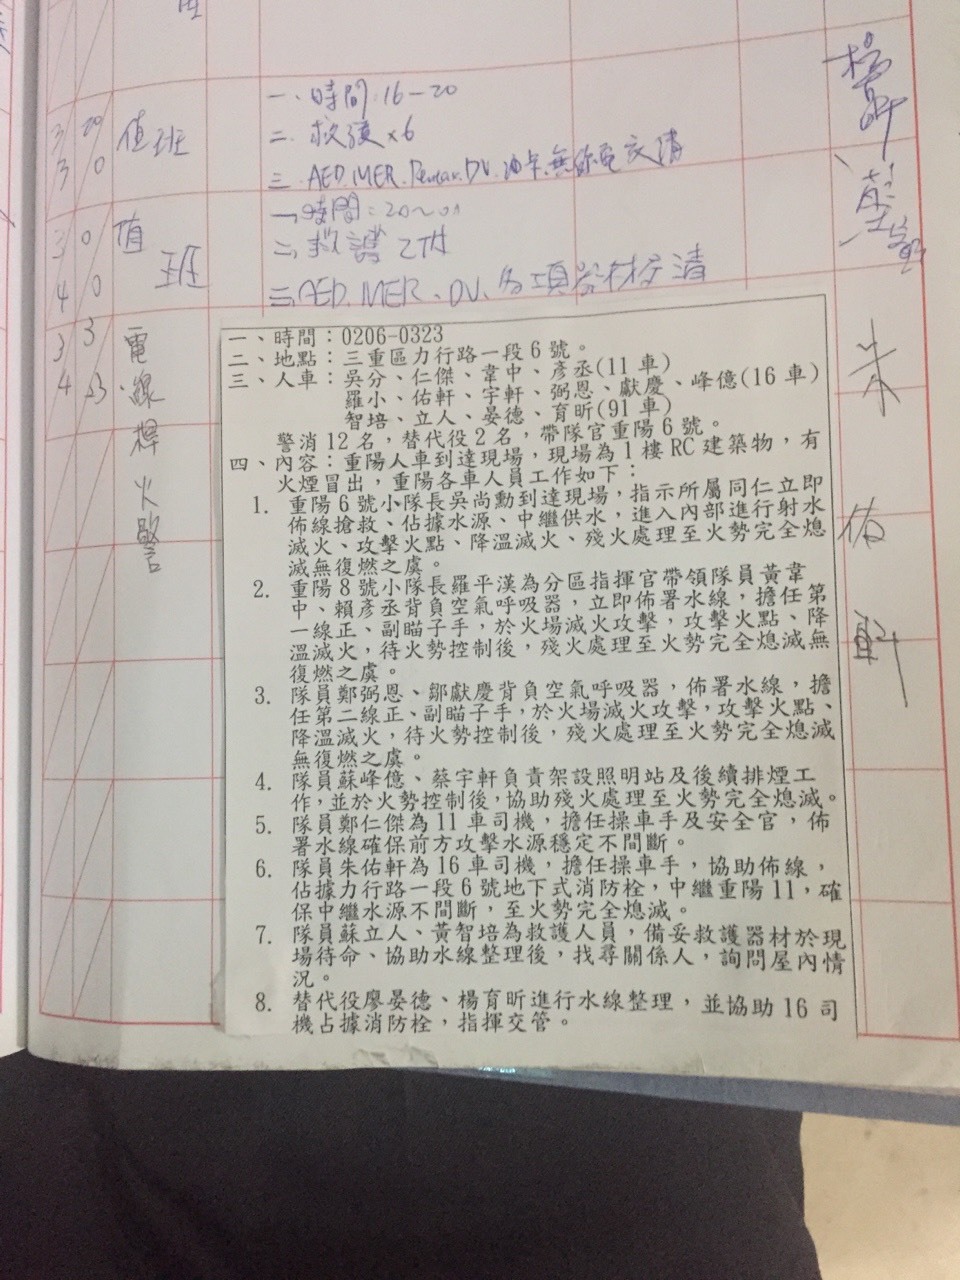 值班
一、時間:16-20
二、救護×6
三、AED.MER.Pentax.DV.油卡.無線電交清
值班
一、時間:20~
二、救護乙件
三、AED.MER、DV、各項器材交清
電線桿火警
朱佑軒
一、時間：0206-0323
二、地點：三重區力行路一段6號。
三、人車：吳分、仁傑、韋中、彥丞(11車)
羅小、佑軒、宇軒、弼恩、獻慶、峰億(16車)
智培、立人、晏德、育昕(91車)
警消12名，替代役2名，帶隊官重陽6號。
四、內容：重陽人車到達現場，現場為1樓RC建築物，有
火煙冒出，重陽各車人員工作如下：
1. 重陽6號小隊長吳尚勳到達現場，指示所屬同仁立即
佈線搶救、佔據水源、中繼供水，進入內部進行射水
滅火、攻擊火點、降溫滅火、殘火處理至火勢完全熄
滅無復燃之虞。
2. 重陽8號小隊長羅平漢為分區指揮官帶領隊員黃韋
中、賴彥丞背負空氣呼吸器，立即佈署水線，擔任第
一線正、副瞄子手，於火場滅火攻擊，攻擊火點、降
溫滅火，待火勢控制後，殘火處理至火勢完全熄滅無
復燃之虞。
3. 隊員鄭弼恩、鄒獻慶背負空氣呼吸器，佈署水線，擔
任第二線正、副瞄子手，於火場滅火攻擊，攻擊火點、
降溫滅火，待火勢控制後，殘火處理至火勢完全熄滅
無復燃之虞。
4. 隊員蘇峰億、蔡宇軒負責架設照明站及後續排煙工
作，並於火勢控制後，協助殘火處理至火勢完全熄滅。
5. 隊員鄭仁傑為11車司機，擔任操車手及安全官，佈
署水線確保前方攻擊水源穩定不間斷。
6. 隊員朱佑軒為16車司機，擔任操車手，協助佈線，
佔據力行路一段6號地下式消防栓，中繼重陽11，確
保中繼水源不間斷，至火勢完全熄滅。
7. 隊員蘇立人、黃智培為救護人員，備妥救護器材於現
場待命、協助水線整理後，找尋關係人，詢問屋內情
況。
8. 替代役廖晏德、楊育昕進行水線整理，並協助16司
機占據消防栓，指揮交管。